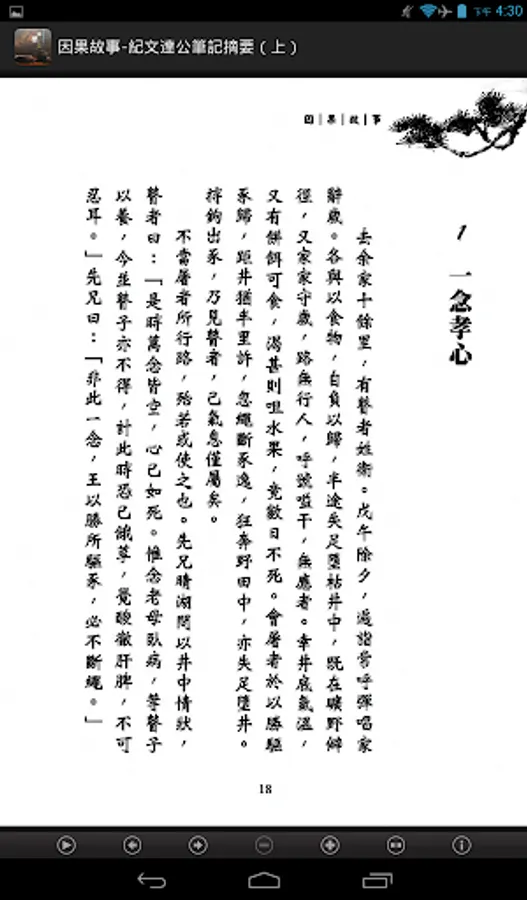 下午 4:30
因果故事-紀文達公筆記摘要（上）
因|果|故|事
1 一念孝心
去余家十餘里，有瞽者姓衛。戊午除夕，遍詣常呼彈唱家
辭歲。各與以食物，自負以歸，半途失足墮枯井中，既在曠野僻
徑，又家家守歲，路無行人，呼號嗌干，無應者。幸井底氣溫，
又有餅餌可食，渴甚則咀水果，竟數日不死。會屠者於以勝驅
豕歸，距井猶半里許，忽繩斷豕逸，狂奔野田中，亦失足墮井。
持鉤出豕，乃見瞽者，已氣息僅屬矣。
不當屠者所行路，殆若或使之也。先兄晴湖問以井中情狀，
瞽者曰：「是時萬念皆空，心已如死。惟念老母臥病，等瞽子
以養，今並瞽子亦不得，計此時恐已餓莩，覺酸徹肝脾，不可
忍耳。」先兄曰：「非此一念，王以勝所驅豕，必不斷繩。」
18